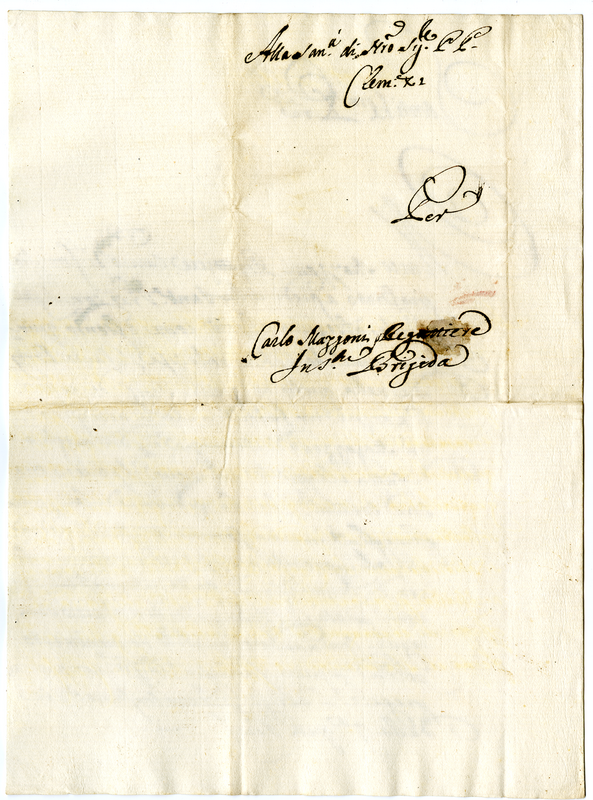 Alla San.ᵗᵃ di Nrõ Sig.ʳᵉ PP.
Clem.ᵉ XI
Per
Carlo Mazzoni Regattiere
In S.ᵗᵃ Brigida